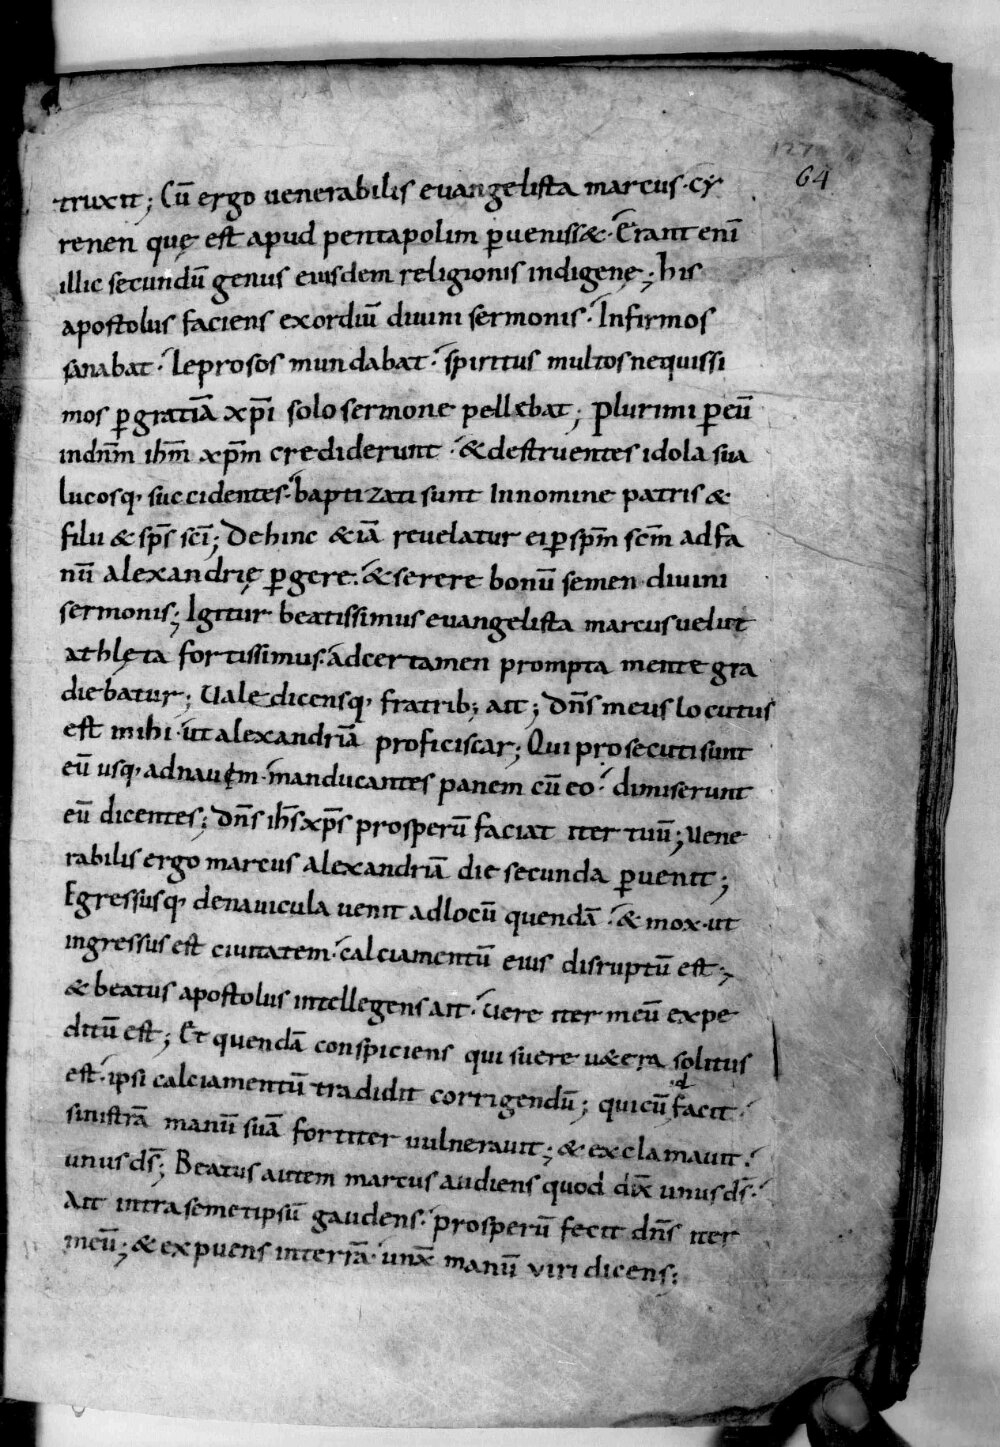 127
64
truxit; Cū ergo uenerabilis euangelista marcus · cy
renen quę est apud pentapolim p̱ueniss&· Erant enī
illic secundū genus eiusdem religionis indigenę; his
apostolus faciens exordiū diuini sermonis · Infirmos
sanabat · leprosos mundabat · spiritus multos nequissi
mos p̱ gratiā xp̄i solo sermone pellebat; Plurimi p̱ eū
in dn̄m ihm̄ xp̄m crediderunt · & destruentes idola sua
lucosq, succidentes · baptizati sunt In nomine patris &
filii & sp̄s sc̄i; Dehinc &iā reuelatur ei p̱ sp̄m sc̄m ad fa
nū alexandrię p̱gere · & serere bonū semen diuini
sermonis; Igitur beatissimus euangelista marcus uelut
athlęta fortissimus · ad certamen prompta mente gra
diebatur; Uale dicensq, fratrib; ait; Dn̄s meus locutus
est mihi · ut alexandriā proficiscar; Qui prosecuti sunt
eū usq, ad nauęm · manducantes panem cū eo · dimiserunt
eū dicentes; Dn̄s ihs̄ xp̄s prosperū faciat iter tuū; Uene
rabilis ergo marcus alexandriā die secunda p̱uenit;
Egressusq, de nauicula uenit ad locū quendā · & mox · ut
ingressus est ciuitatem · calciamentū eius disruptū est;
& beatus apostolus intellegens ait · uere iter meū expe
ditū est; Et quendā conspiciens qui suere u&era solitus
est · ipsi calciamentū tradidit corrigendū; qui cū id facit ·
sinistrā manū suā fortiter uulnerauit; & exclamauit ·
unus ds̄; Beatus autem marcus audiens quod dix̄ unus ds̄ ·
Ait intra semetipsū gaudens · prosperū fecit dn̄s iter
meū; & expuens in terrā · unx̄ manū uiri dicens;